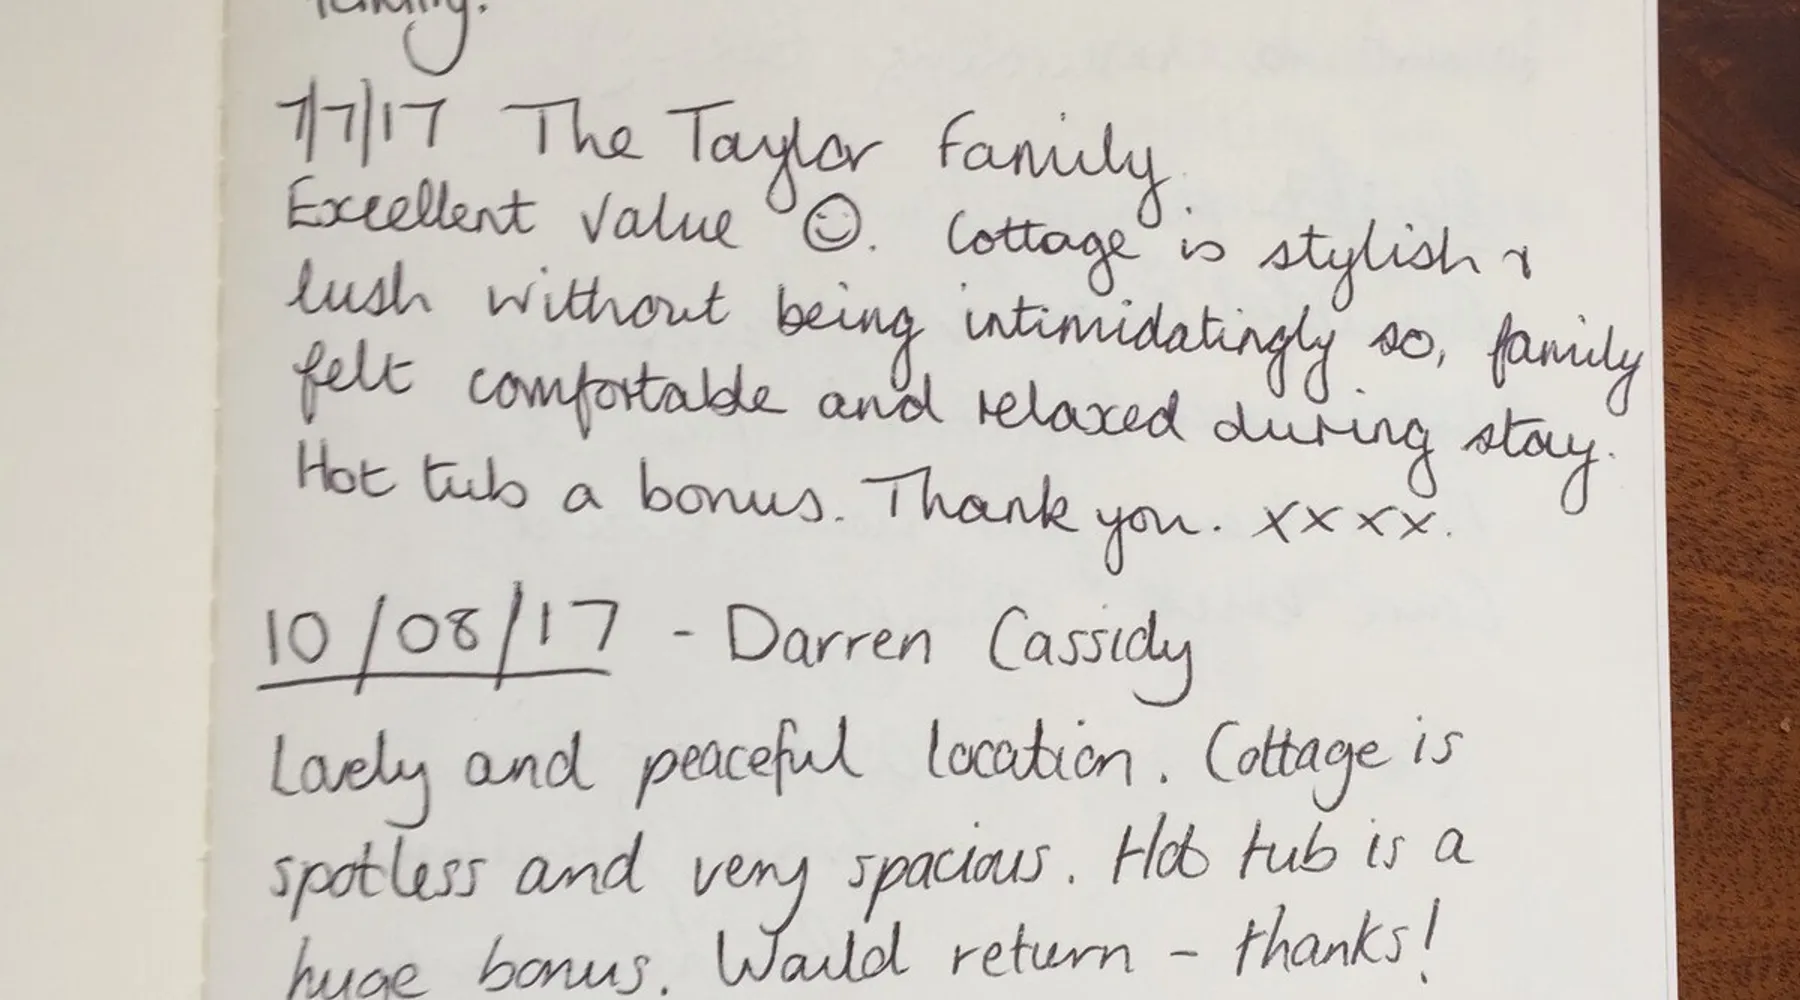 family.
7/7/17 The Taylor Family.
Excellent value ☺. Cottage is stylish &
lush without being intimidatingly so, family
felt comfortable and relaxed during stay.
Hot tub a bonus. Thank you. xxxx.
10/08/17 - Darren Cassidy
Lovely and peaceful location. Cottage is
spotless and very spacious. Hot tub is a
huge bonus. Would return - thanks!